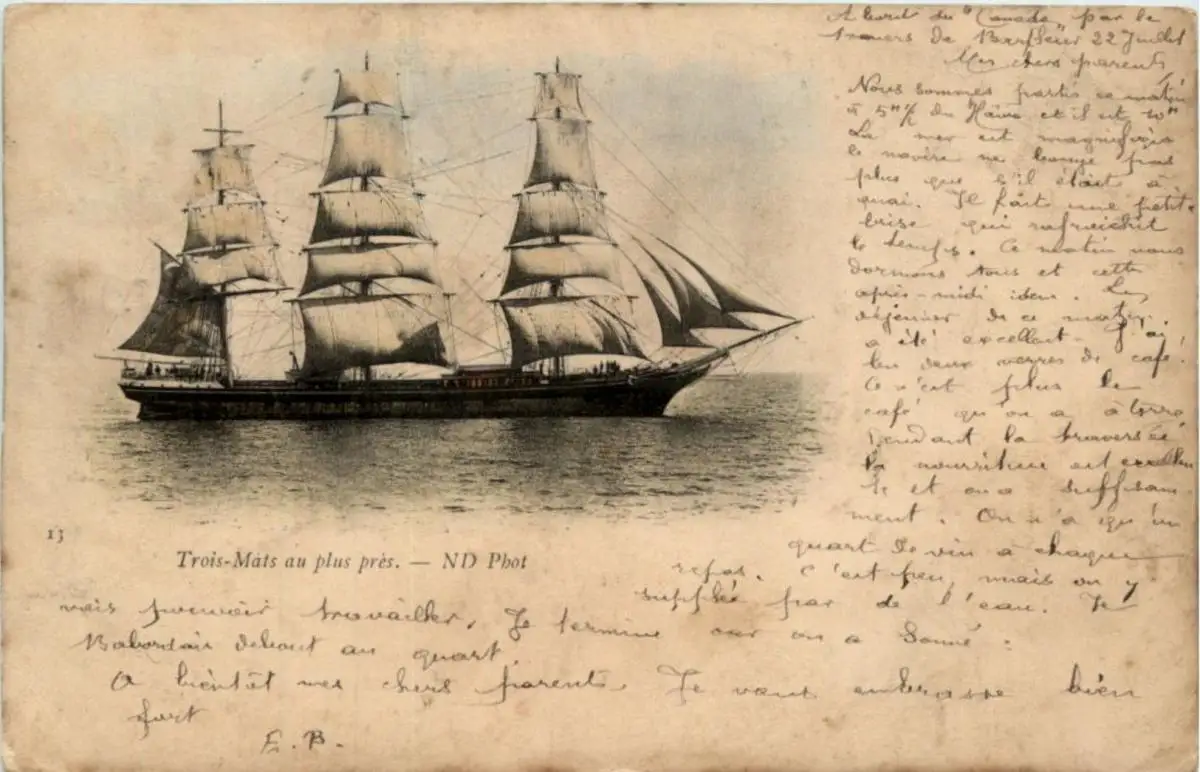 A bord du "Canada" par le
travers de Barfleur 22 Juillet
Mes chers parents,
Nous sommes partis ce matin
à 5h ½ du Havre et il est 10h
La mer est magnifique
le navire ne bouge pas
plus que s'il était à
quai. Il fait une petite
brise qui rafraichit
le temps. Ce matin nous
dormons tous et cette
après-midi idem. Le
déjeuner de ce matin
a été excellent. J'ai
bu deux verres de café!
Ce n'est plus le
café qu'on a à terre,
Pendant la traversée
la nourriture est excellen
te et on a suffisam
ment. On n'a qu'un
quart de vin à chaque
repas. C'est peu, mais on y
supplée par de l'eau. Je
vais pouvoir travailler. Je termine car on a sonné:
Babordais debout au quart
A bientôt mes chers parents. Je vous embrasse bien
fort
E. B.
13
Trois-Mâts au plus près. — ND Phot